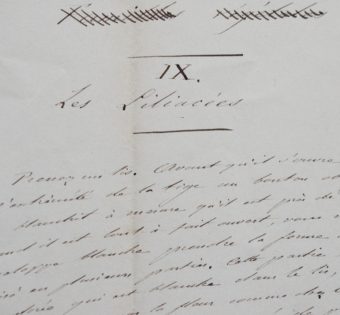 IX.
Les Liliacées
Prenez un lis. Avant qu'il s'ouvre
l'extrémité de la tige un bouton
blanchit à mesure qu'il est près de
il est tout à fait ouvert, vous
enveloppe blanche prendre la forme
en plusieurs parties. Cette partie
qui est blanche dans le lis,
la fleur comme chez